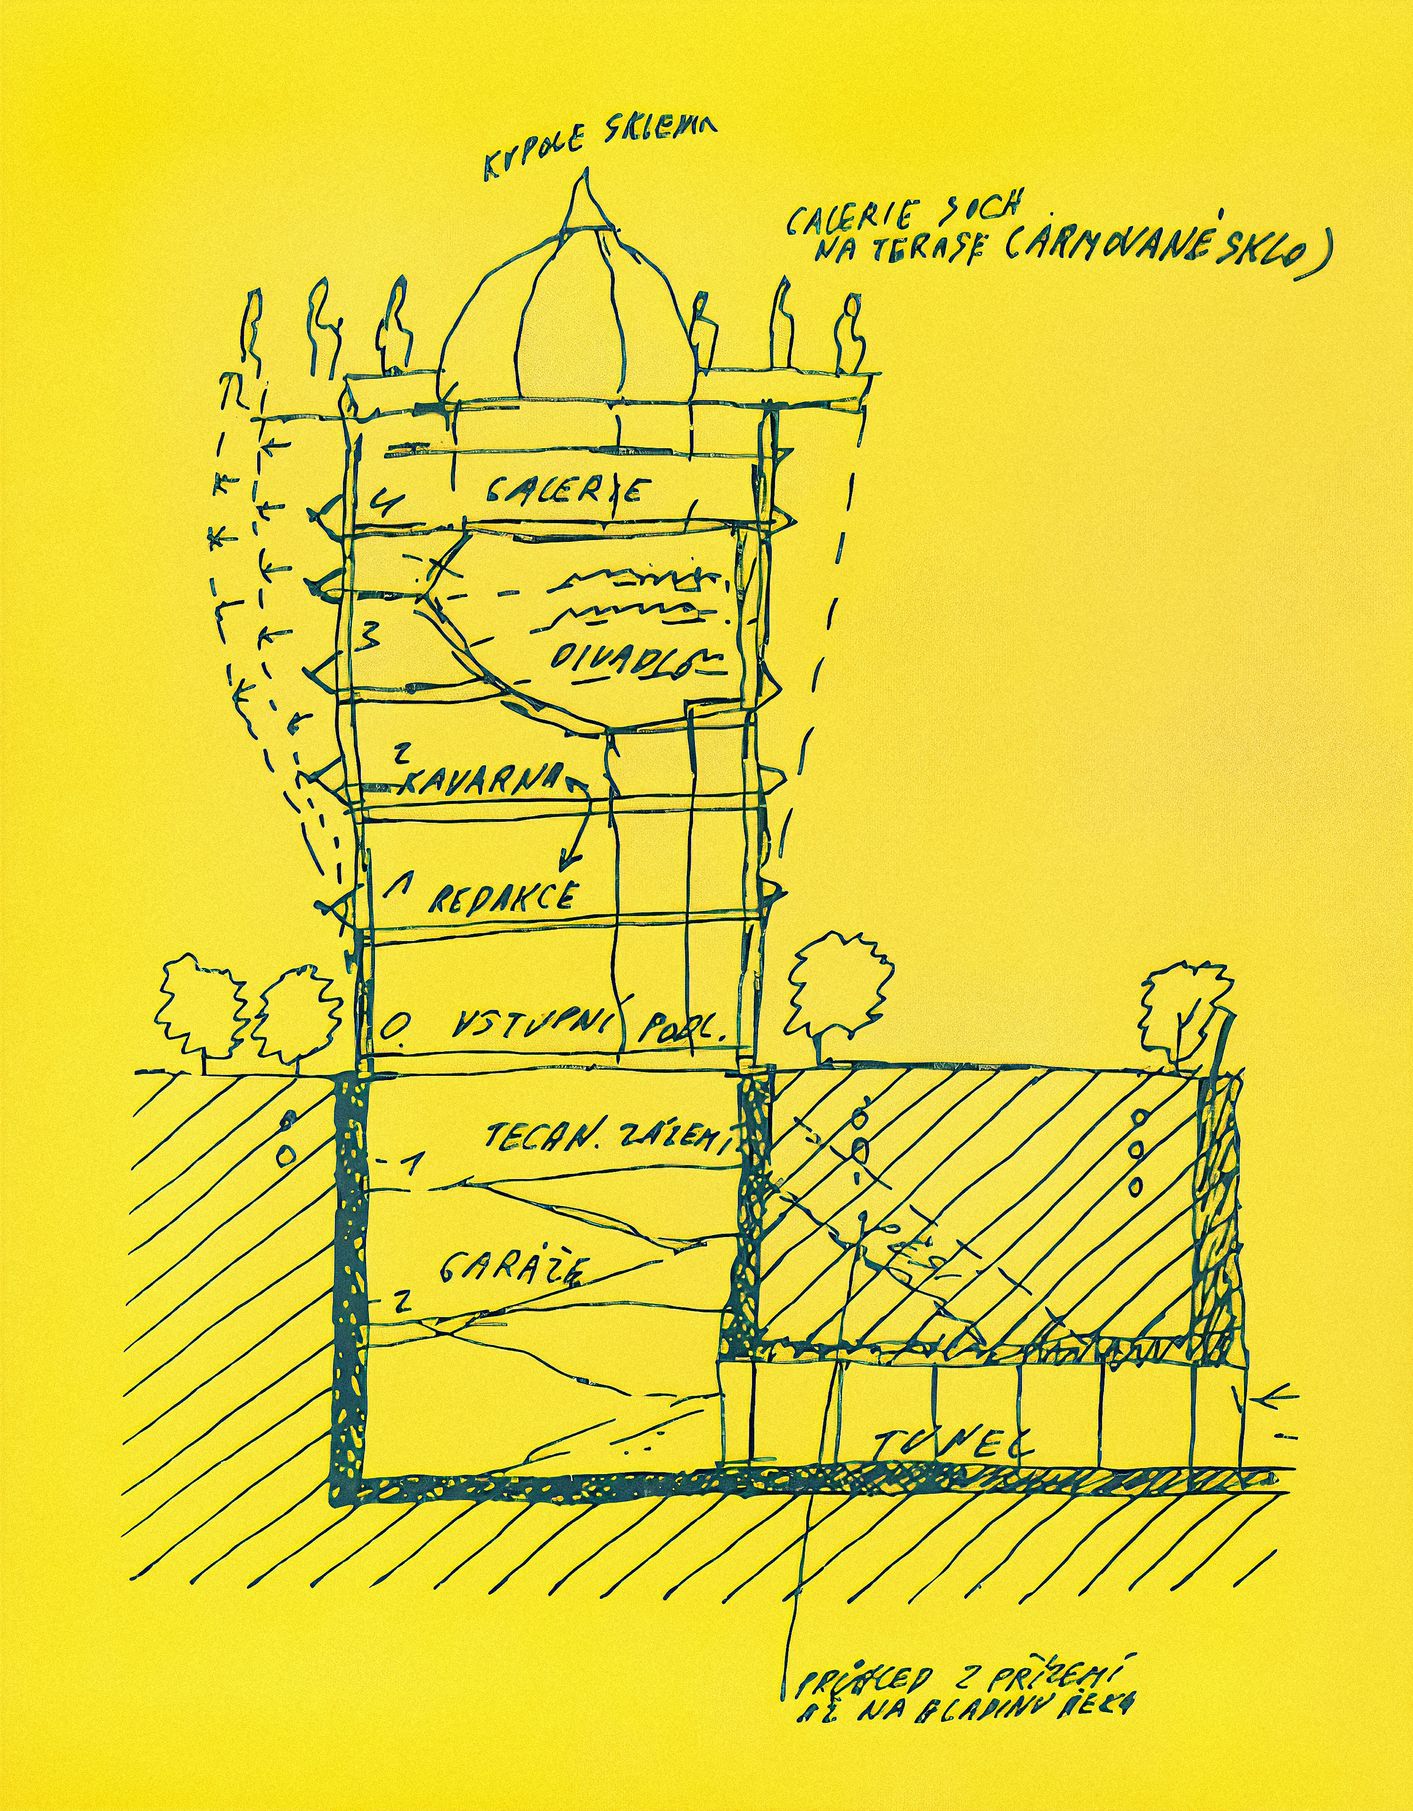 KUPOLE SKLEMA
GALERIE SOCH
NA TERASE (ARMOVANÉ SKLO)
4 GALERIE
3
DIVADLO
2
KAVARNA
1 REDAKCE
0. VSTUPNÍ PODL.
TECHN. ZÁZEMÍ
-1
GARÁŽE
-2
TUNEL
PRŮHLED Z PŘÍZEMÍ
AŽ NA HLADINU ŘEKY